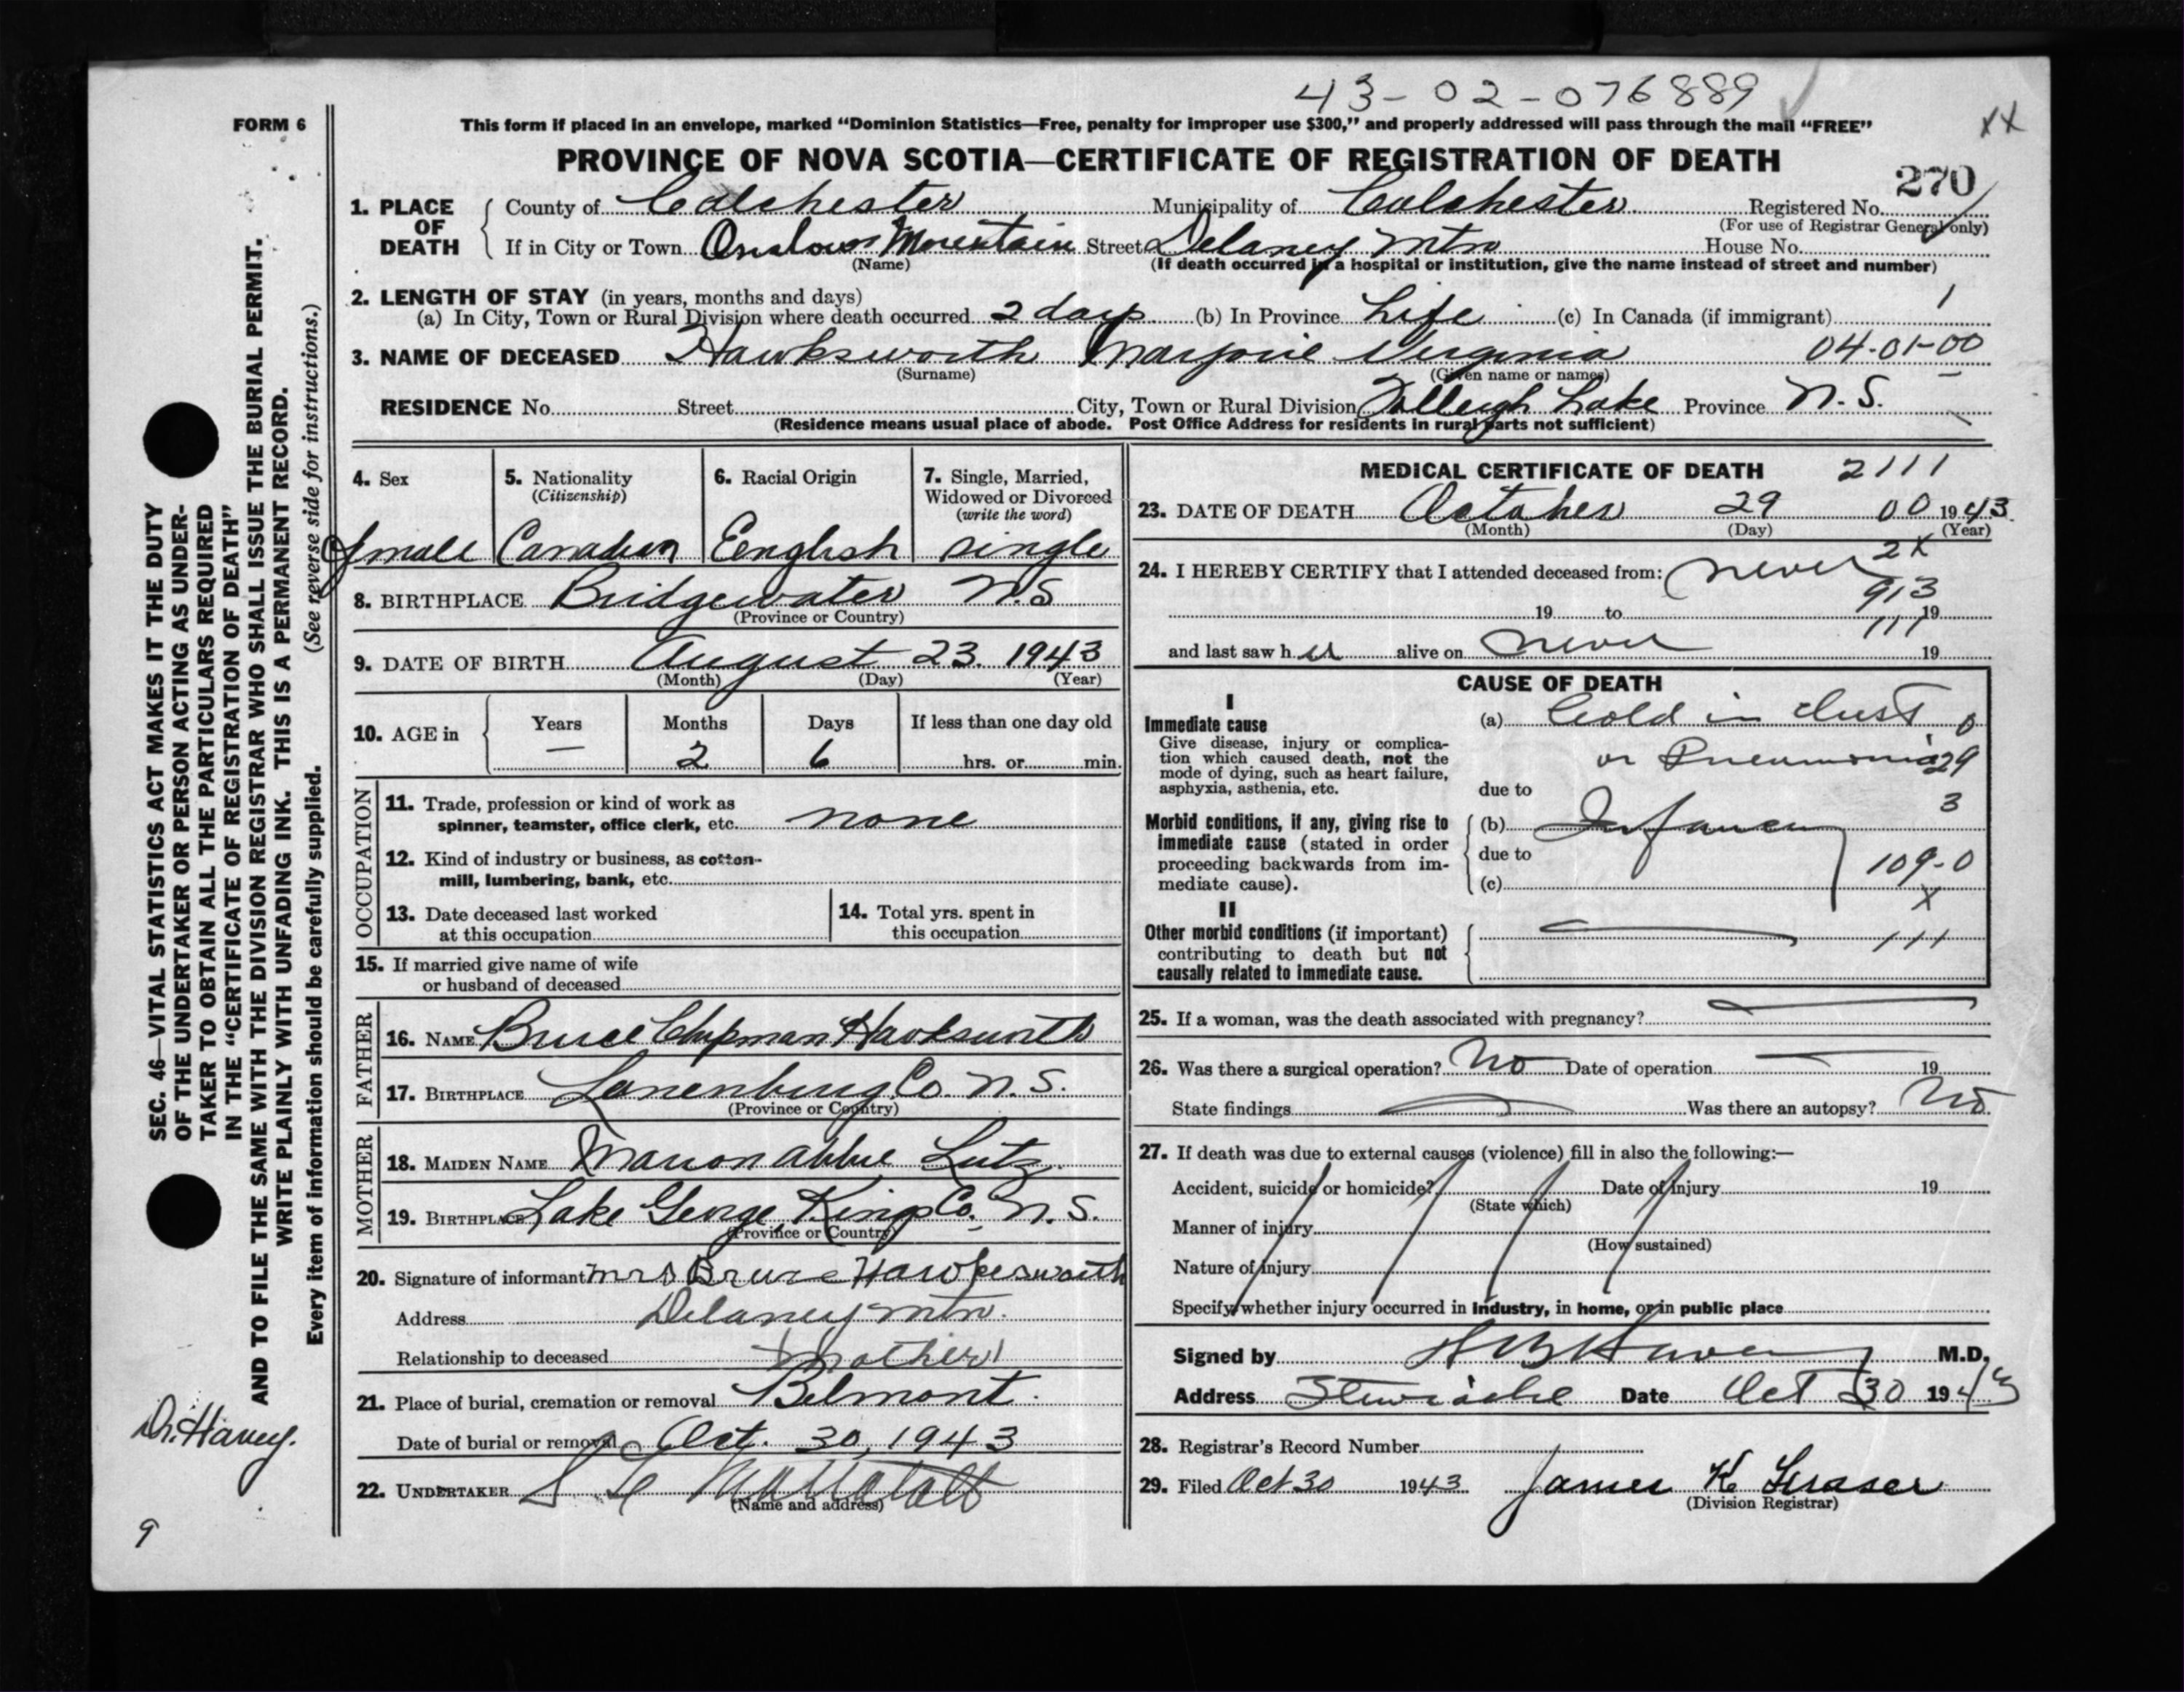 43-02-076889
FORM 6
This form if placed in an envelope, marked "Dominion Statistics—Free, penalty for improper use $300," and properly addressed will pass through the mail "FREE"
XX
PROVINCE OF NOVA SCOTIA—CERTIFICATE OF REGISTRATION OF DEATH
270
1. PLACE OF DEATH County of Colchester Municipality of Colchester Registered No.
(For use of Registrar General only)
If in City or Town Onslow Mountain Street Delaney Mtn House No.
(Name) (If death occurred in a hospital or institution, give the name instead of street and number)
2. LENGTH OF STAY (in years, months and days)
(a) In City, Town or Rural Division where death occurred 2 days (b) In Province Life (c) In Canada (if immigrant) 1
3. NAME OF DECEASED Hawksworth Marjorie Virginia 04-01-00
(Surname) (Given name or names)
RESIDENCE No. Street City, Town or Rural Division Folleigh Lake Province N.S.
(Residence means usual place of abode. Post Office Address for residents in rural parts not sufficient)
4. Sex 5. Nationality (Citizenship) 6. Racial Origin 7. Single, Married, Widowed or Divorced (write the word)
Canadian English single
8. BIRTHPLACE Bridgewater N.S
(Province or Country)
9. DATE OF BIRTH August 23 1943
(Month) (Day) (Year)
10. AGE in Years Months Days If less than one day old
— 2 6 hrs. or min.
OCCUPATION
11. Trade, profession or kind of work as
spinner, teamster, office clerk, etc. none
12. Kind of industry or business, as cotton-
mill, lumbering, bank, etc.
13. Date deceased last worked
at this occupation
14. Total yrs. spent in
this occupation
15. If married give name of wife
or husband of deceased
FATHER
16. NAME Bruce Chipman Hawksworth
17. BIRTHPLACE Lunenburg Co. N.S.
(Province or Country)
MOTHER
18. MAIDEN NAME Marion Abbie Lutz
19. BIRTHPLACE Lake George, Kings Co. N.S.
(Province or Country)
20. Signature of informant Mrs Bruce Hawkesworth
Address Delaney Mtn.
Relationship to deceased Mother
21. Place of burial, cremation or removal Belmont.
Date of burial or removal Oct. 30, 1943
22. UNDERTAKER
(Name and address)
MEDICAL CERTIFICATE OF DEATH 2111
23. DATE OF DEATH October 29 00 1943.
(Month) (Day) (Year)
2X
24. I HEREBY CERTIFY that I attended deceased from: never
913
19 to 19
111
and last saw her alive on never 19
CAUSE OF DEATH
I
Immediate cause
Give disease, injury or complica-
tion which caused death, not the
mode of dying, such as heart failure,
asphyxia, asthenia, etc.
(a) Cold in chest 0
or Pneumonia 29
due to
3
Morbid conditions, if any, giving rise to
immediate cause (stated in order
proceeding backwards from im-
mediate cause).
(b) Infancy
due to
109-0
(c)
X
II
Other morbid conditions (if important)
contributing to death but not
causally related to immediate cause.
111
25. If a woman, was the death associated with pregnancy?
26. Was there a surgical operation? No Date of operation 19
State findings Was there an autopsy? No.
27. If death was due to external causes (violence) fill in also the following:—
Accident, suicide or homicide? Date of injury 19
(State which)
Manner of injury
(How sustained)
Nature of injury
Specify whether injury occurred in industry, in home, or in public place
Signed by M.D.
Address Stewiacke Date Oct 30 1943
28. Registrar's Record Number
29. Filed Oct 30 1943 James K Fraser
(Division Registrar)
SEC. 46—VITAL STATISTICS ACT MAKES IT THE DUTY
OF THE UNDERTAKER OR PERSON ACTING AS UNDER-
TAKER TO OBTAIN ALL THE PARTICULARS REQUIRED
IN THE "CERTIFICATE OF REGISTRATION OF DEATH"
AND TO FILE THE SAME WITH THE DIVISION REGISTRAR WHO SHALL ISSUE THE BURIAL PERMIT.
WRITE PLAINLY WITH UNFADING INK. THIS IS A PERMANENT RECORD.
Every item of information should be carefully supplied. (See reverse side for instructions.)
Dr. Havey.
9